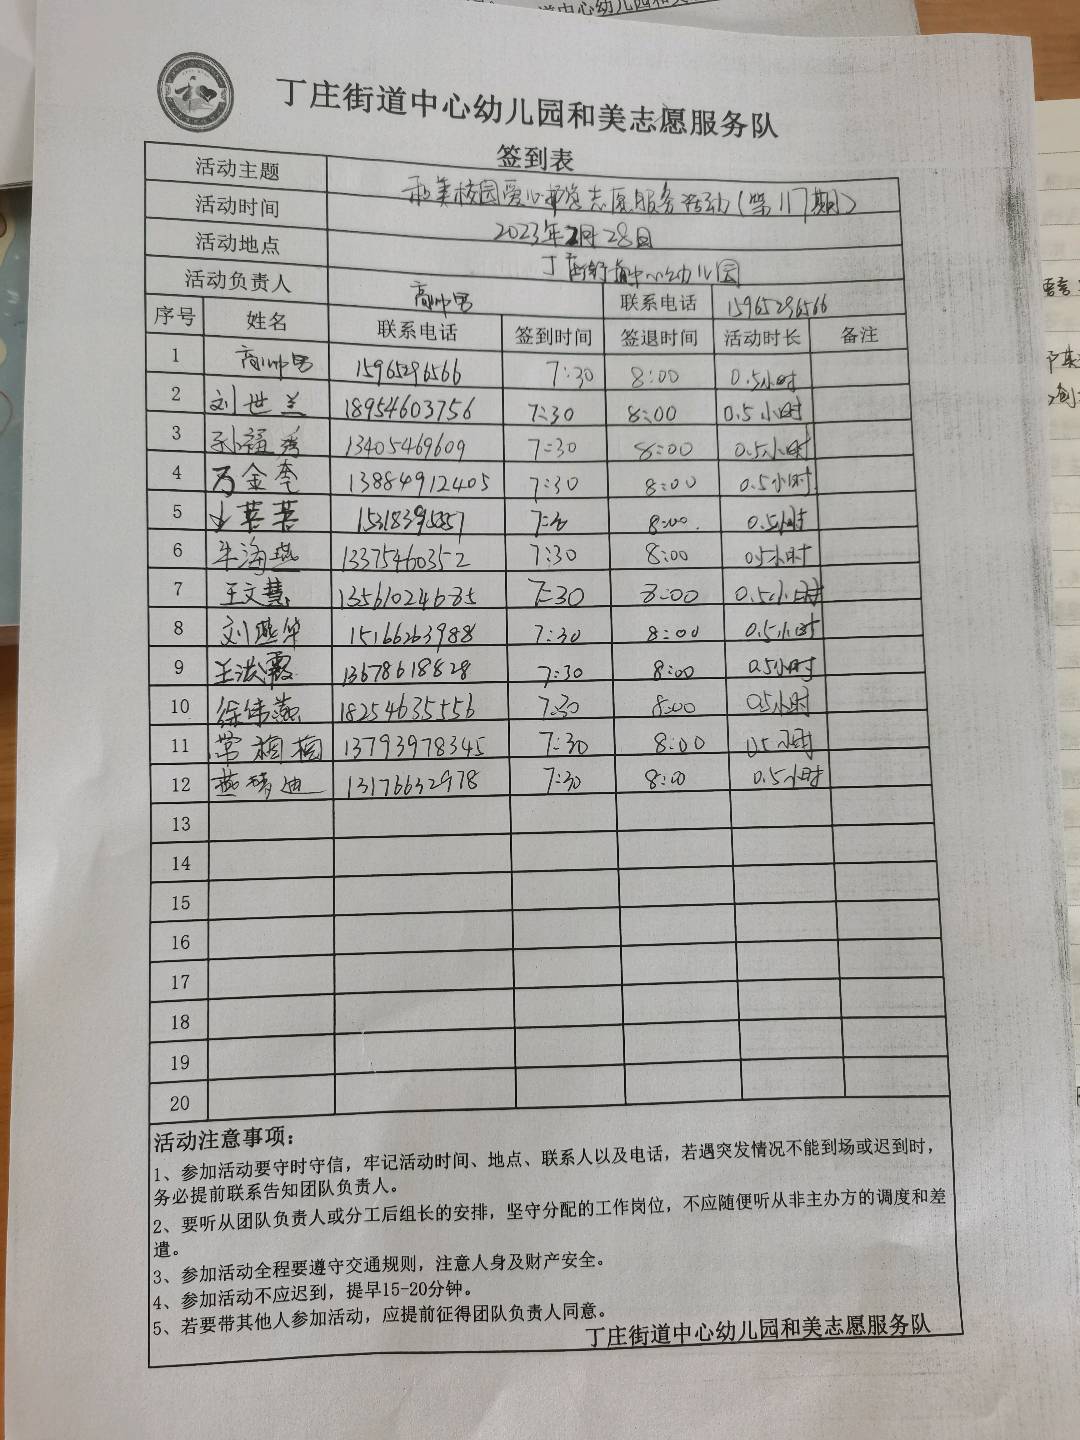 丁庄街道中心幼儿园和美志愿服务队
签到表
活动主题 和美校园爱心护学志愿服务活动(第117期)
活动时间 2023年2月28日
活动地点 丁庄街道中心幼儿园
活动负责人 高帅男 联系电话 15965296566
序号 姓名 联系电话 签到时间 签退时间 活动时长 备注
1 高帅男 15965296566 7:30 8:00 0.5小时
2 刘世兰 18954603756 7:30 8:00 0.5小时
3 孙福秀 13405469609 7:30 8:00 0.5小时
4 万金奎 13884912405 7:30 8:00 0.5小时
5 8:00 0.5小时
6 牛海燕 13375460352 7:30 8:00 0.5小时
7 王文慧 13561024685 7:30 8:00 0.5小时
8 刘燕华 15166263988 7:30 8:00 0.5小时
9 王洪霞 13678618828 7:30 8:00 0.5小时
10 徐伟燕 18254635556 7:30 8:00 0.5小时
11 常楠楠 13793978345 7:30 8:00 0.5小时
12 燕梦迪 13176632978 7:30 8:00 0.5小时
13
14
15
16
17
18
19
20
活动注意事项:
1、参加活动要守时守信,牢记活动时间、地点、联系人以及电话,若遇突发情况不能到场或迟到时,
务必提前联系告知团队负责人。
2、要听从团队负责人或分工后组长的安排,坚守分配的工作岗位,不应随便听从非主办方的调度和差
遣。
3、参加活动全程要遵守交通规则,注意人身及财产安全。
4、参加活动不应迟到,提早15-20分钟。
5、若要带其他人参加活动,应提前征得团队负责人同意。
丁庄街道中心幼儿园和美志愿服务队